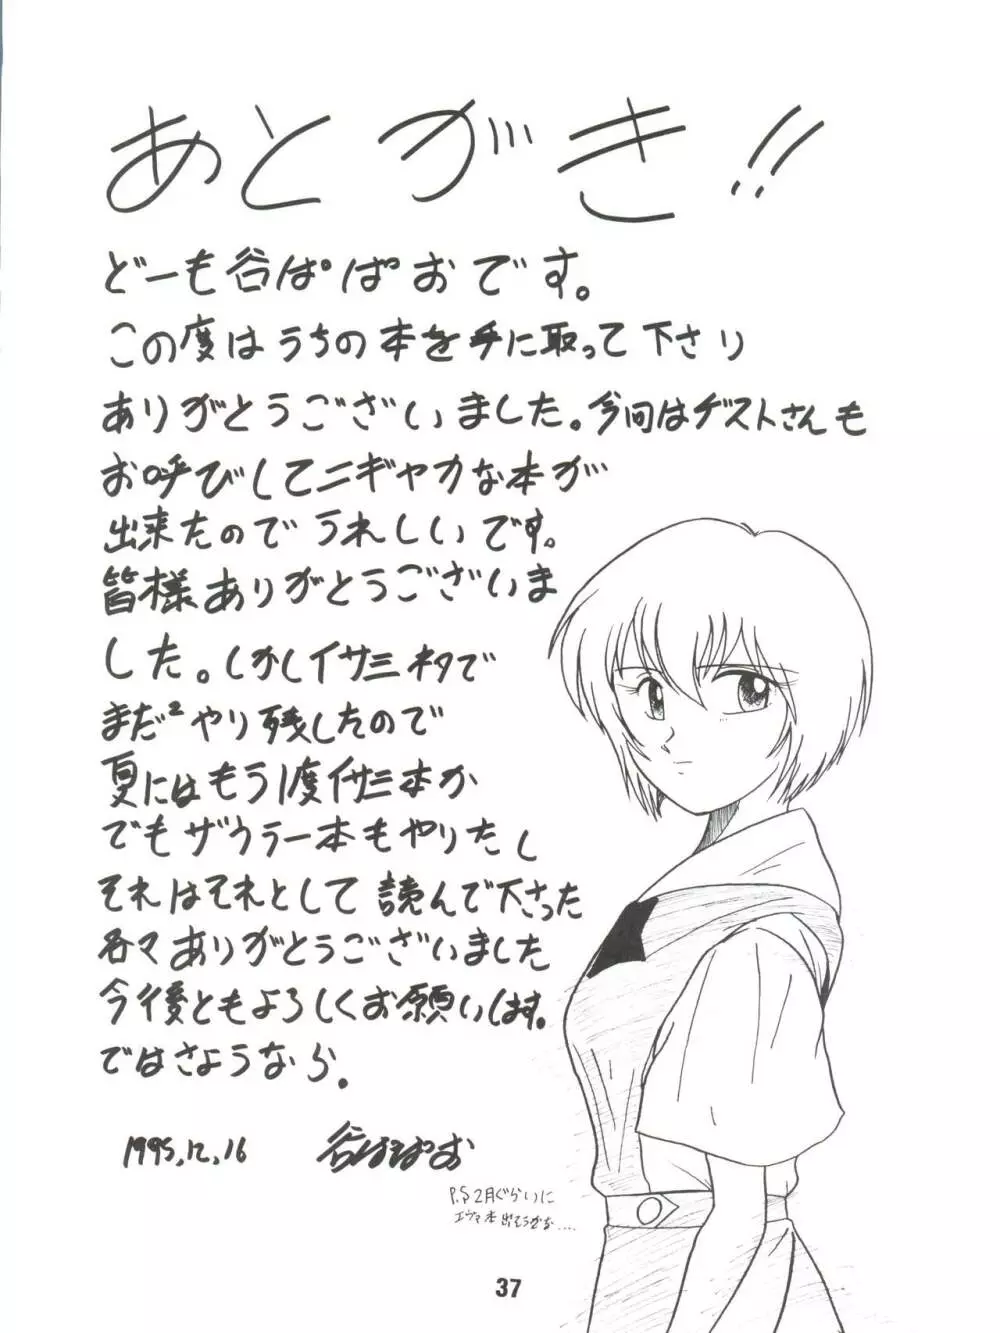 あとがき!!
どーも谷ぱぱおです。
この度はうちの本を手に取って下さり
ありがとうございました。今回はゲストさんも
お呼びしてニギヤカな本が
出来たのでうれしいです。
皆様ありがとうございま
した。しかしイサミネタで
まだ²やり残したので
夏にはもう1度イサミ本か
でもザウラー本もやりたし
それはそれとして読んで下さった
各々ありがとうございました
今後ともよろしくお願いします。
ではさようなら.
1995.12.16
谷ぱぱお
P.S 2月ぐらいに
エヴァ本出そうかな....
37